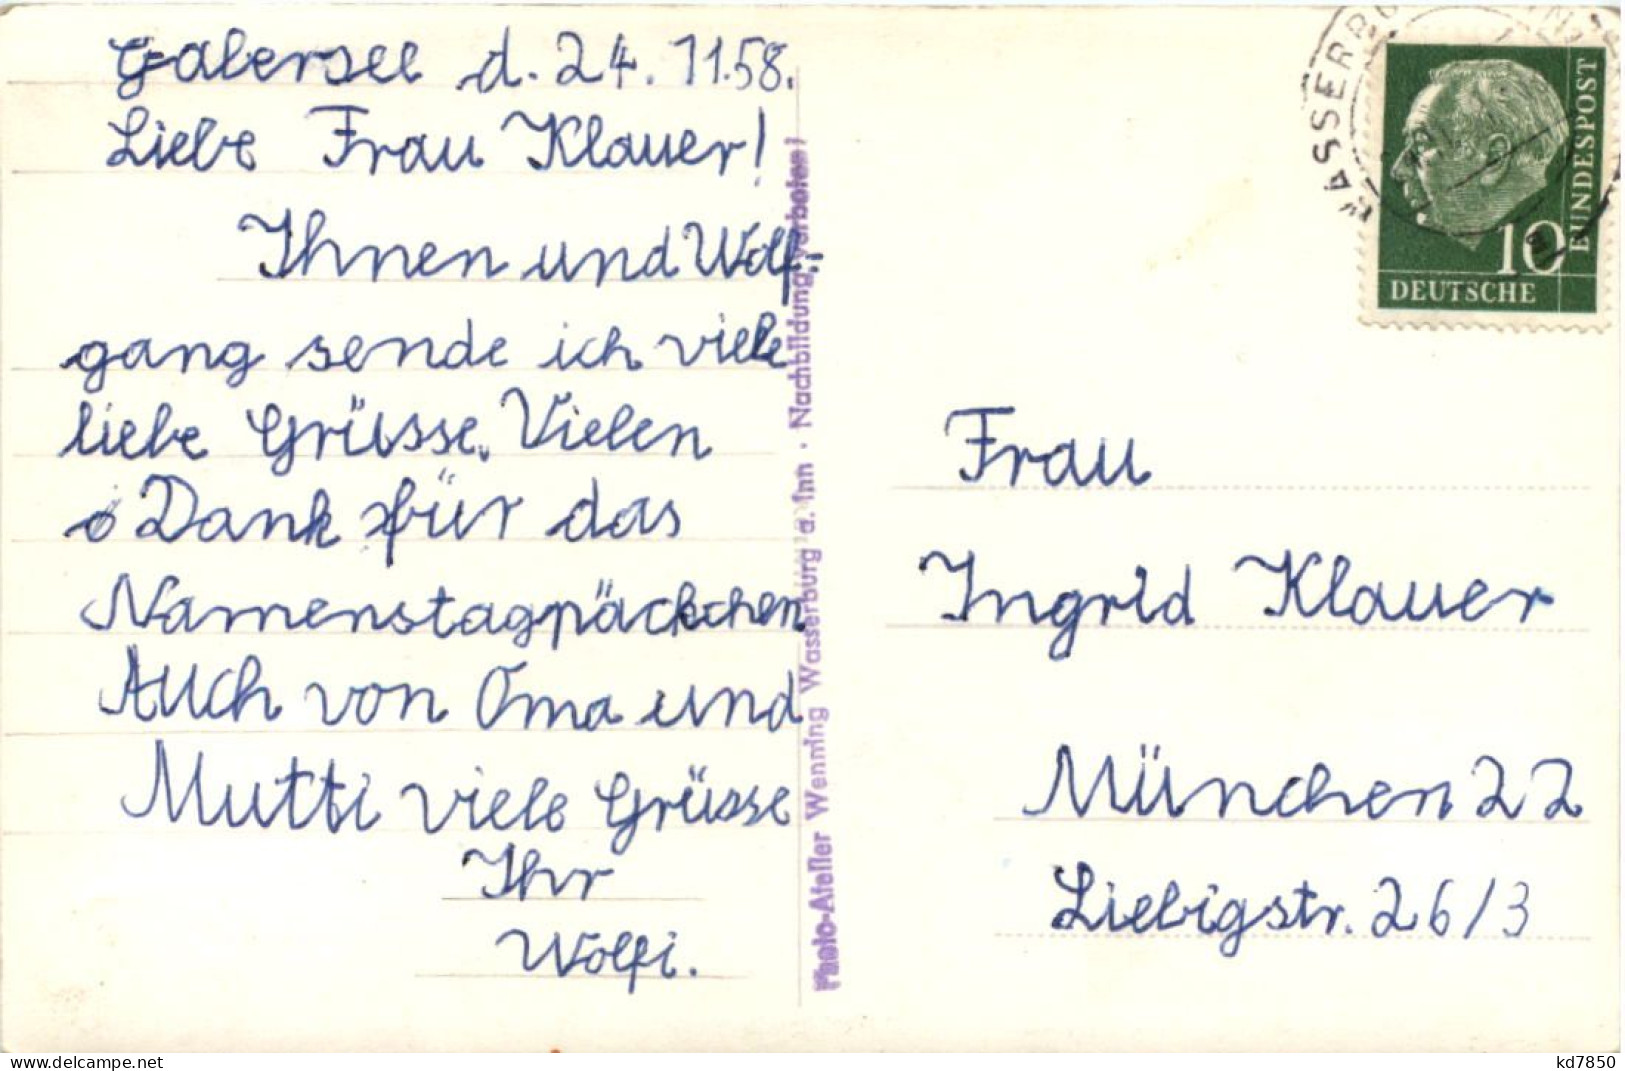 Gabersee d. 24. 11.58.
Liebe Frau Klauer!
Ihnen und Wolf-
gang sende ich viele
liebe Grüsse. Vielen
Dank für das
Namenstagpäckchen
Auch von Oma und
Mutti viele Grüsse
Ihr
Wolfi.
Photo-Atelier Wenning Wasserburg a. Inn · Nachbildung verboten!
WASSERBU
10
DEUTSCHE
BUNDESPOST
Frau
Ingrid Klauer
München 22
Liebigstr. 26/3
https://www.delcampe.net
kd7850